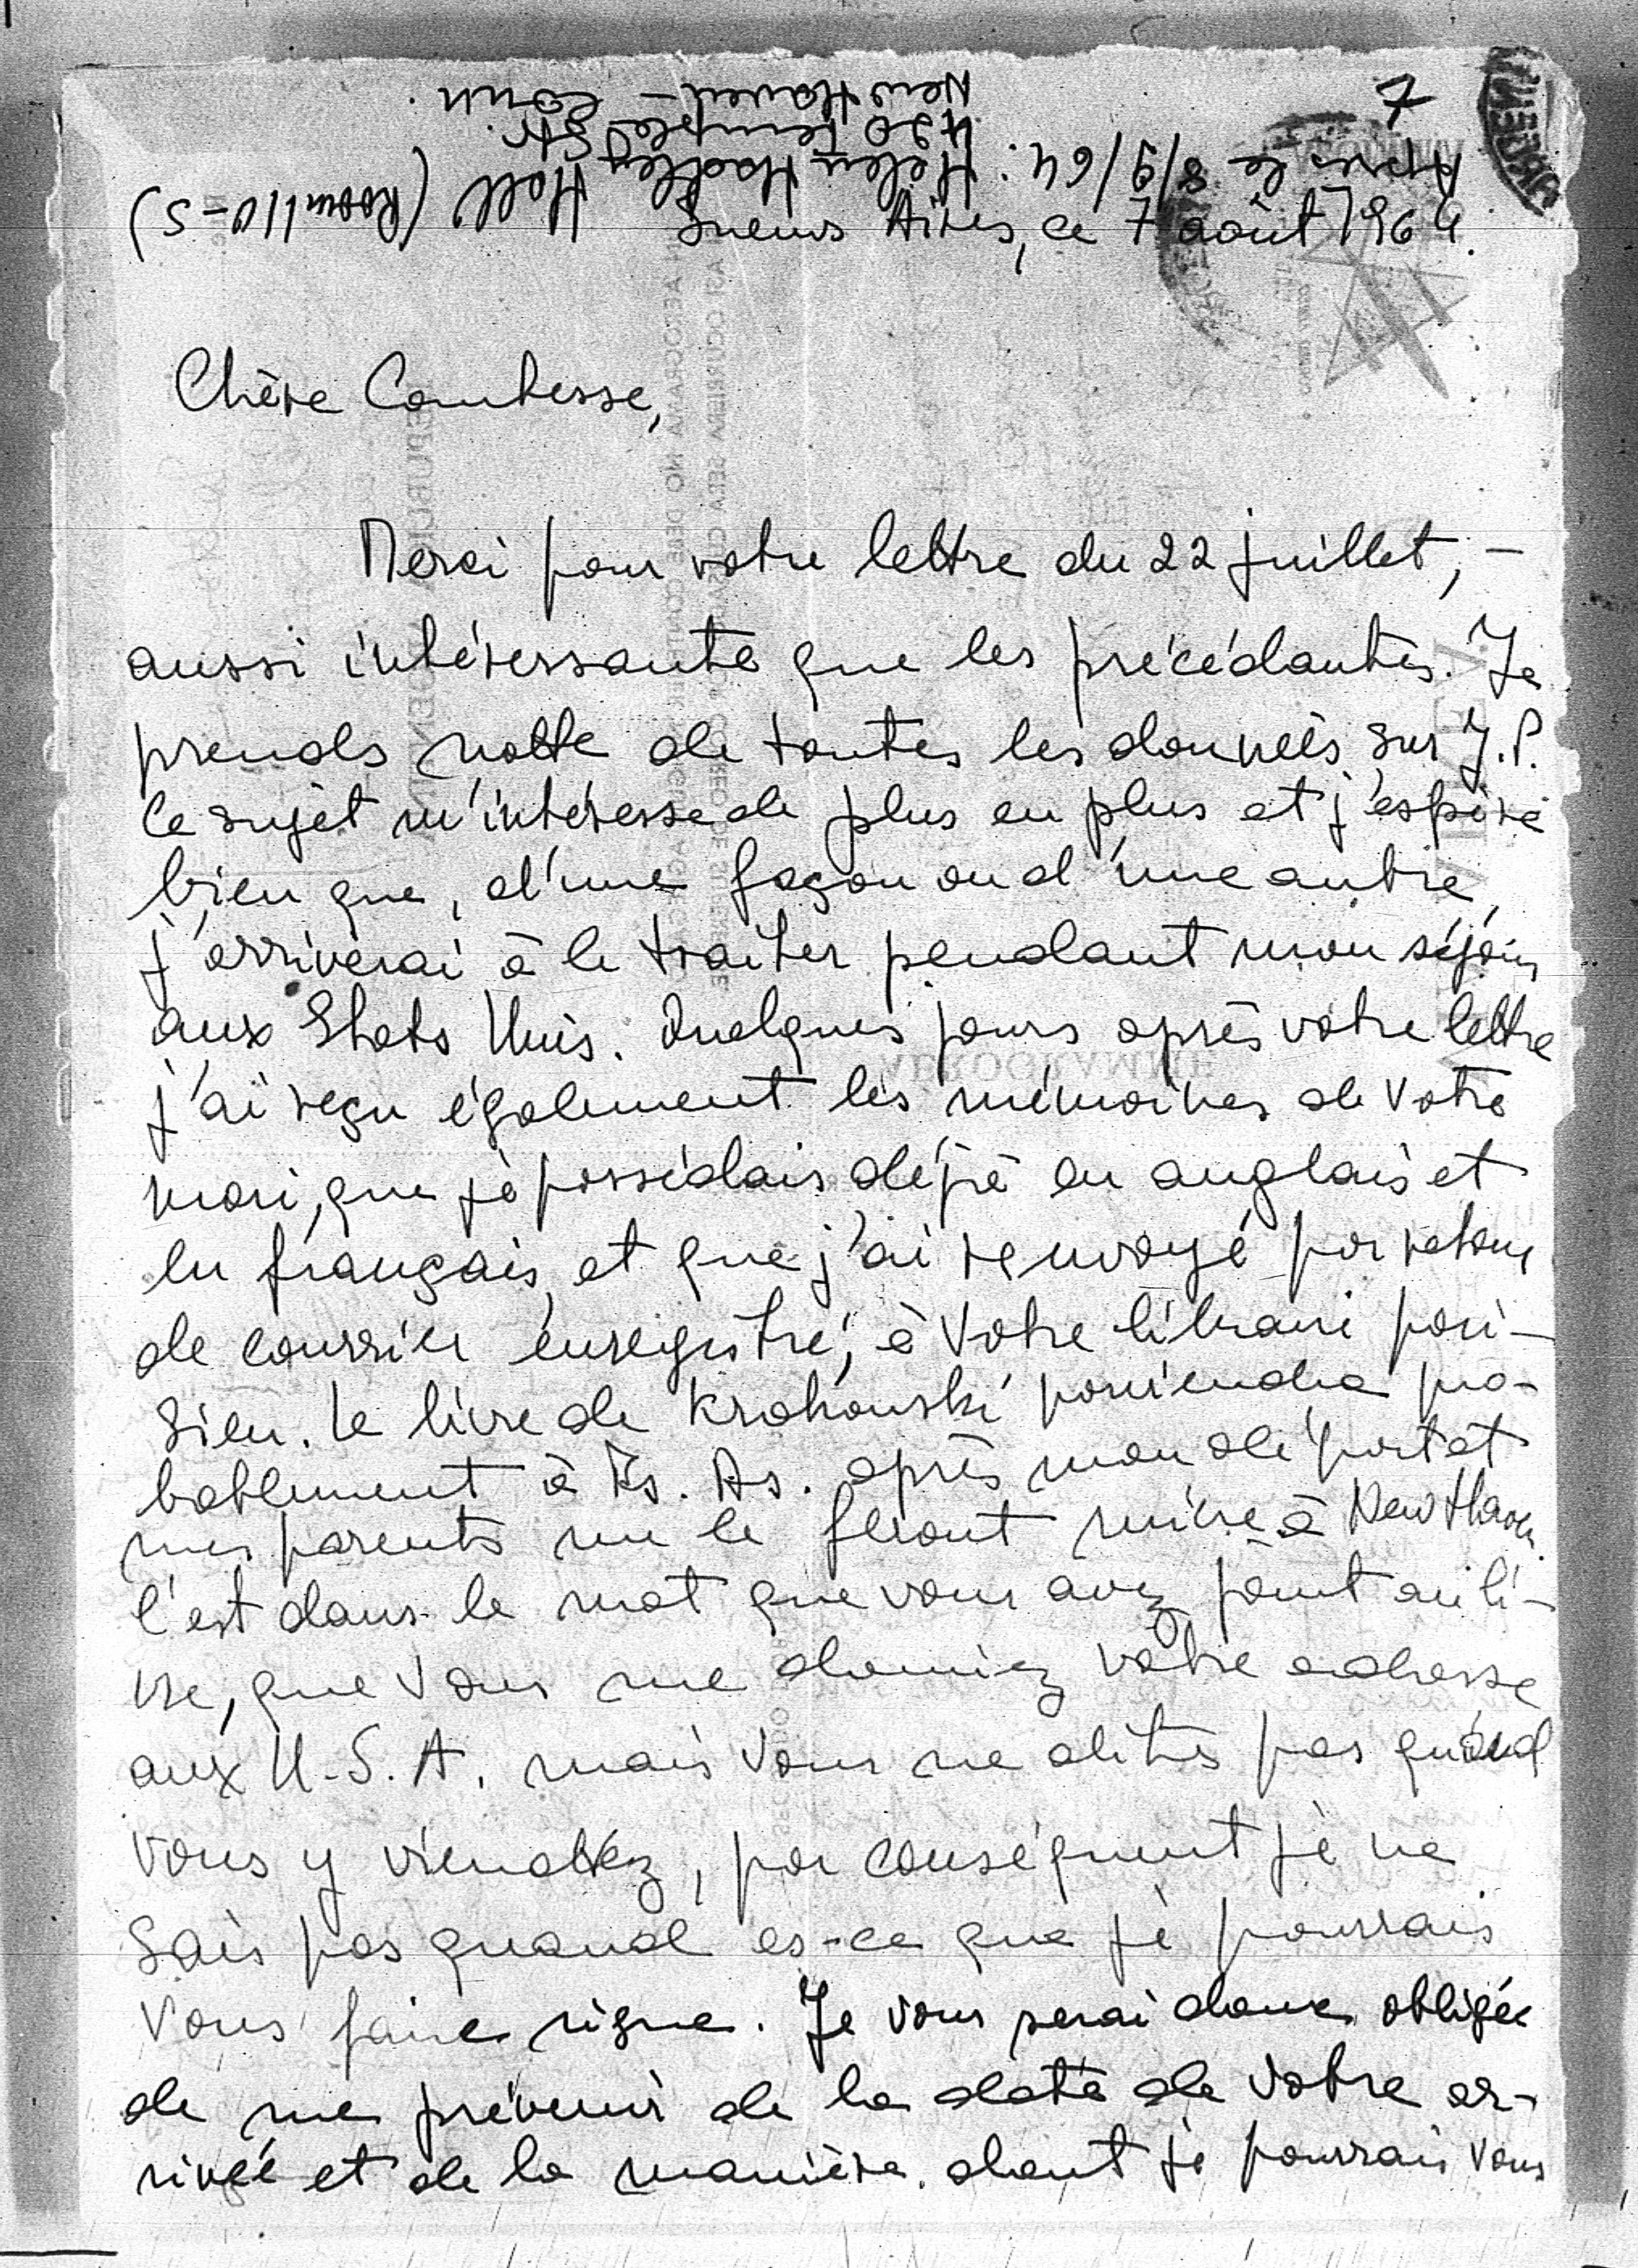 7
Après le 8/9/64: Helen Hadley Hall (Room 110-S)
420 Temple Str.
New Haven - Conn.
Buenos Aires, ce 7 août 1964.
Chère Comtesse,
Merci pour votre lettre du 22 juillet, -
aussi intéressante que les précédantes. Je
prends notte de toutes les données sur J.P.
Ce sujet m'intéresse de plus en plus et j'espère
bien que, d'une façon ou d'une autre,
j'arriverai à le traiter pendant mon séjour
aux Etats Unis. Quelques jours après votre lettre
j'ai reçu également les mémoires de Votre
mari, que je possédais déjà en anglais et
en français, et que j'ai renvoyé par retour
de courrier enregistré, à Votre libraire pari-
sien. Le livre de Krakowski parviendra pro-
bablement à Bs. As. après mon départ et
mes parents me le feront suivre à New Haven.
C'est dans le mot que vous avez joint au li-
vre, que Vous me donniez votre adresse
aux U.S.A. mais Vous ne dites pas quand
Vous y viendrez, par conséquent je ne
sais pas quand es-ce que je pourrais
Vous faire signe. Je vous serai donc obligée
de me prévenir de la date de Votre ar-
rivée et de la manière dont je pourrais Vous
AEROGRAMME